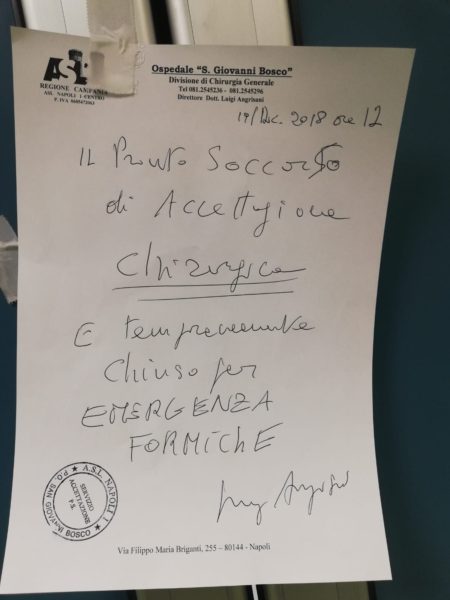 ASL
REGIONE CAMPANIA
ASL NAPOLI 1 CENTRO
Ospedale "S. Giovanni Bosco"
Divisione di Chirurgia Generale
Tel 081.2545236 - 081.2545296
Direttore Dott. Luigi Angrisani
19/Dic. 2018 ore 12
IL Pronto Soccorso
di Accettazione
Chirurgica
E temporaneamente
Chiuso per
EMERGENZA
FORMICHE
A.S.L. NAPOLI 1
P.O. SAN GIOVANNI BOSCO
SERVIZIO
ACCETTAZIONE
P.S.
Via Filippo Maria Briganti, 255 – 80144 - Napoli